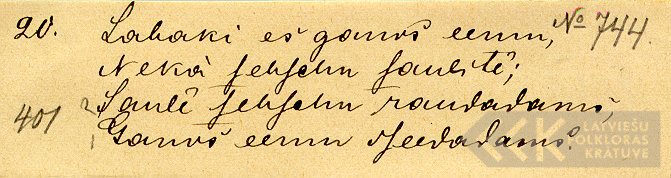 20. Labaki es ganos eemu, № 744.
Nekà sehschu saulitē;
401 Saulē sehschu raudadams,
Ganos eemu dseedadams.
LATVIEŠU
FOLKLORAS
KRĀTUVE